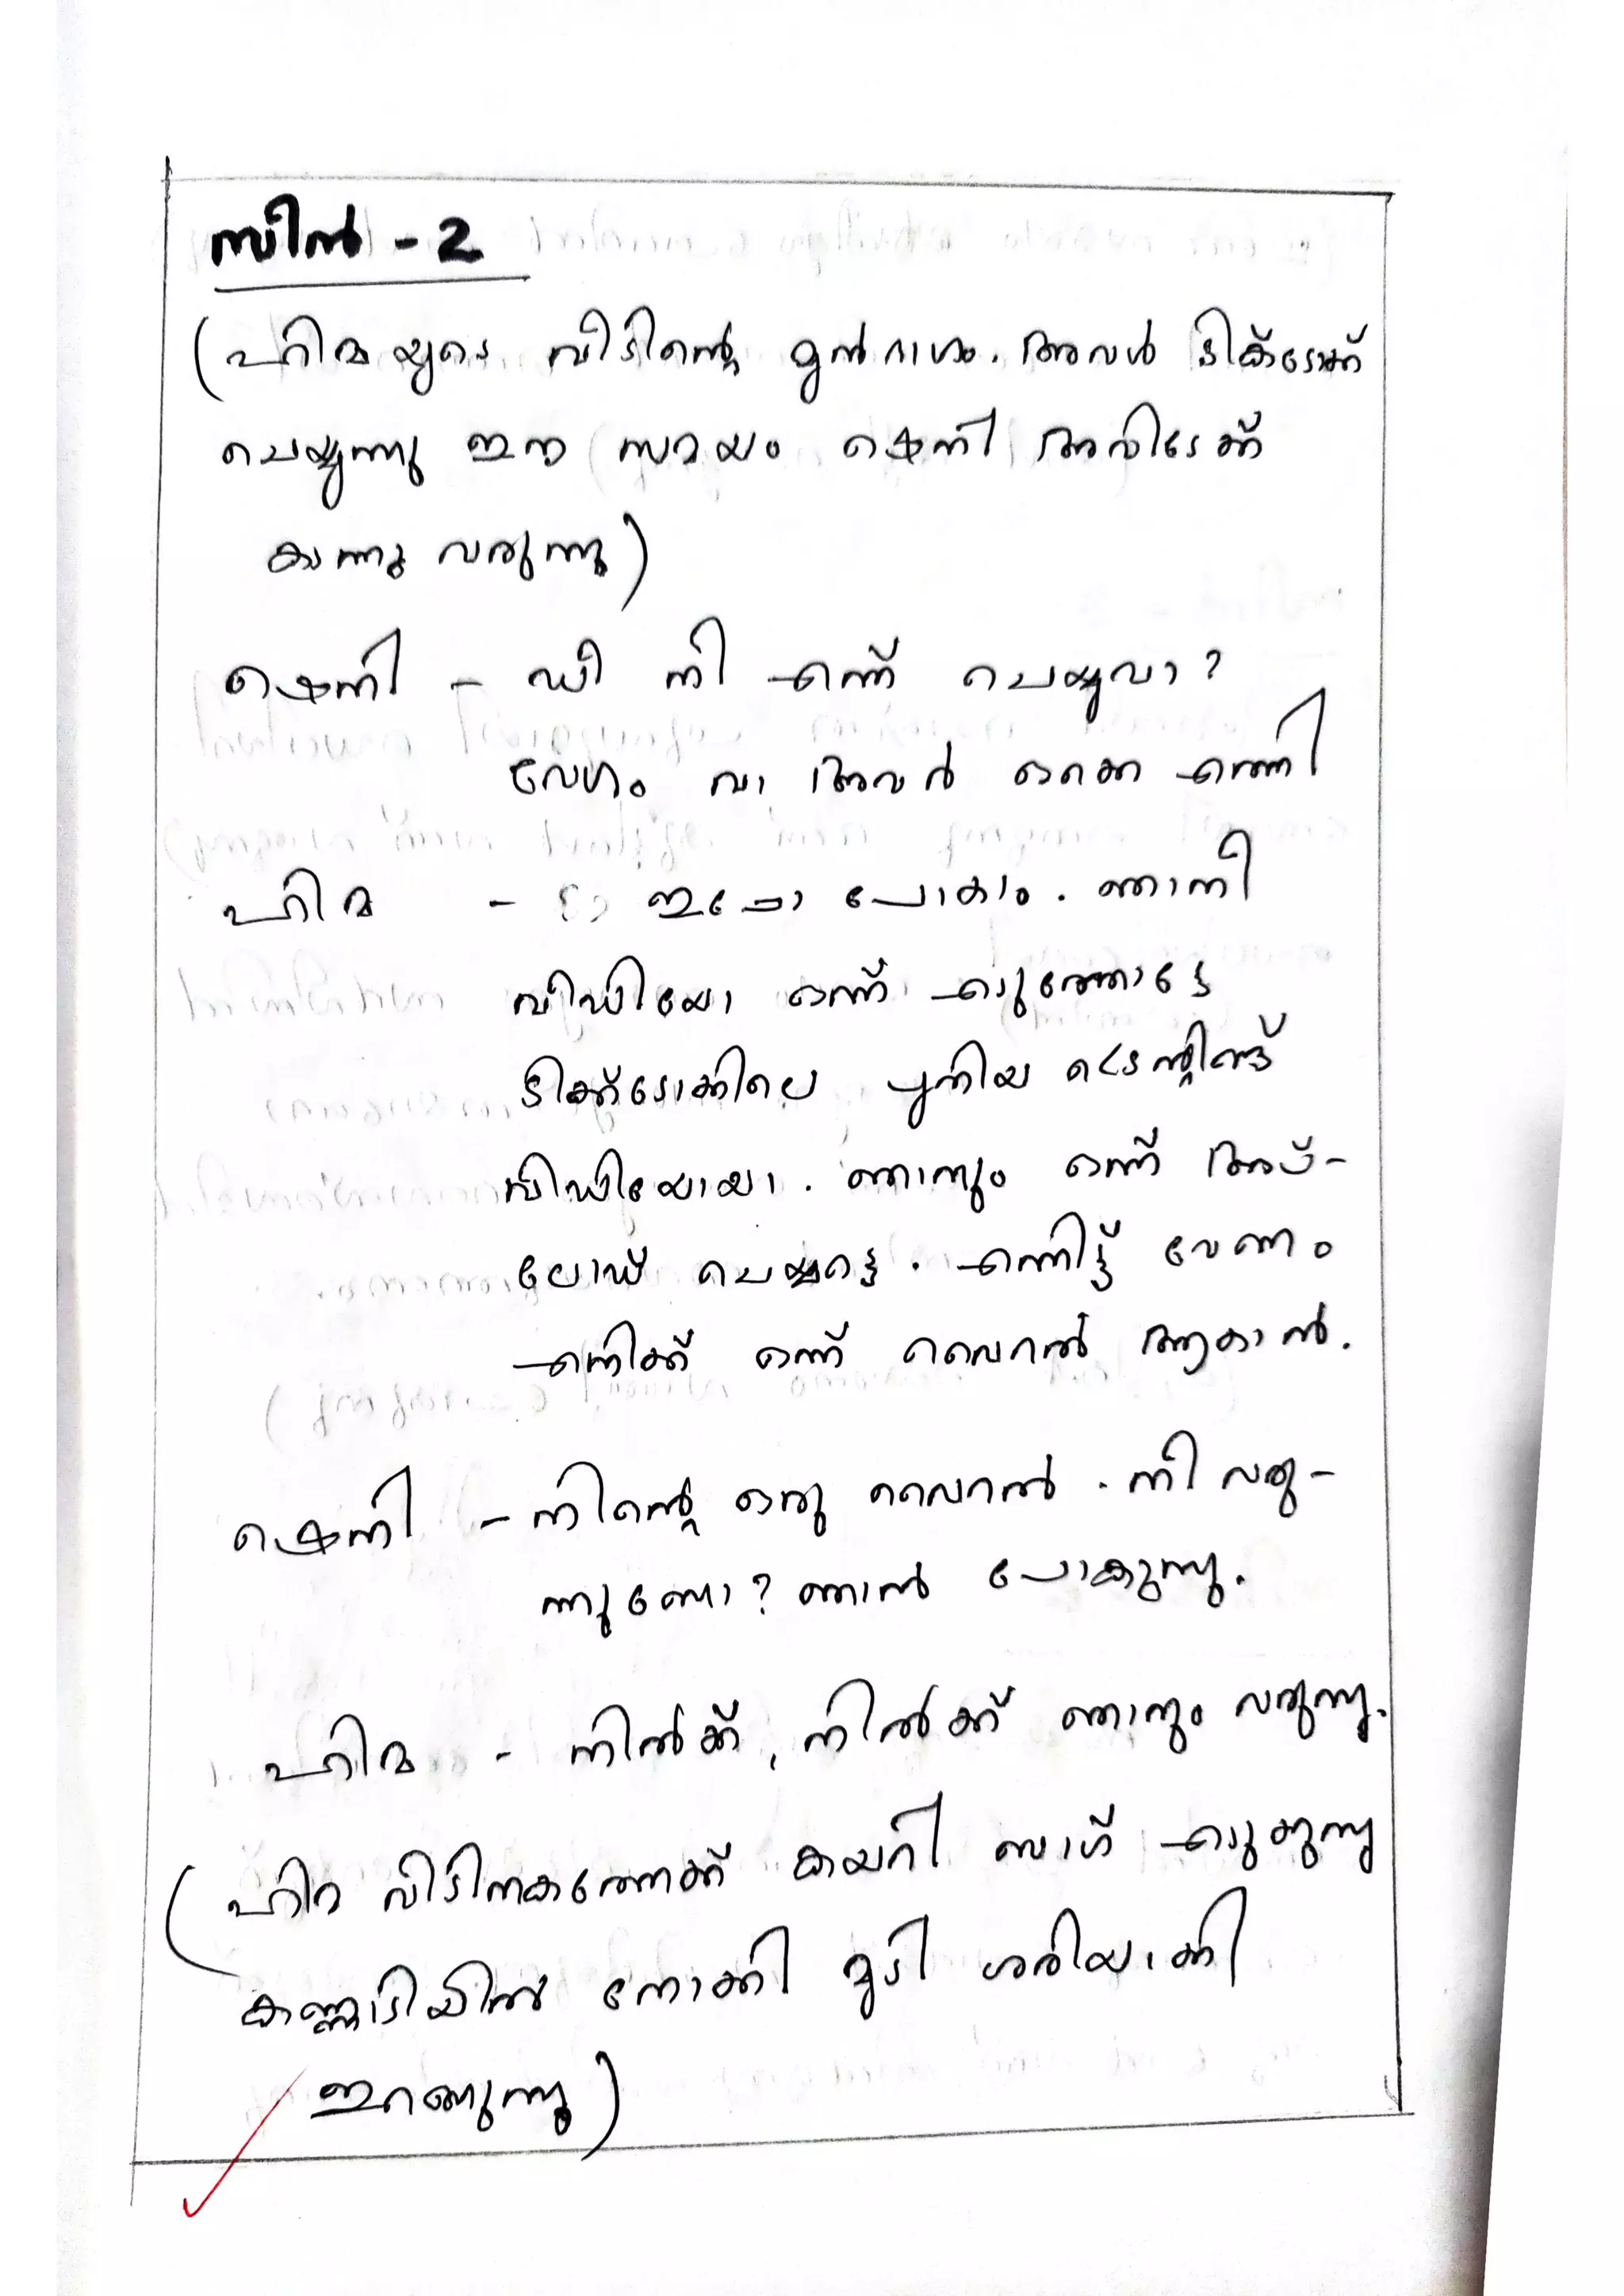 സീൻ - 2
(ഹിമയുടെ വീടിന്റെ മുൻഭാഗം. അവൾ ടിക്ടോക്ക്
ചെയ്യുന്നു ഈ സമയം ഷെനി അവിടേക്ക്
കടന്നു വരുന്നു)
ഷെനി - ഡീ നീ എന്ത് ചെയ്യുവാ?
വേഗം വാ അവർ ഒക്കെ എത്തി
ഹിമ - ഇപ്പോ പോകാം. ഞാനീ
വീഡിയോ ഒന്ന് എടുത്തോട്ടെ
ടിക്ക്ടോക്കിലെ പുതിയ ട്രെന്റിങ്ങ്
വീഡിയോയാ. ഞാനും ഒന്ന് അപ്-
ലോഡ് ചെയ്യട്ടെ. എന്നിട്ട് വേണം
എനിക്ക് ഒന്ന് വൈറൽ ആകാൻ.
ഷെനി - നിന്റെ ഒരു വൈറൽ. നീ വരു-
ന്നുണ്ടോ? ഞാൻ പോകുന്നു.
ഹിമ - നിൽക്ക്, നിൽക്ക് ഞാനും വരുന്നു.
(ഹിമ വീടിനകത്തേക്ക് കയറി ബാഗ് എടുക്കുന്നു
കണ്ണാടിയിൽ നോക്കി മുടി ശരിയാക്കി
ഇറങ്ങുന്നു)